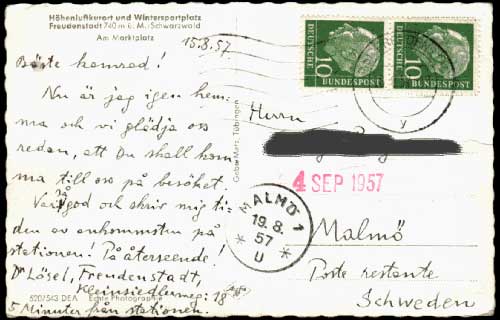 Höhenluftkurort und Wintersportplatz
Freudenstadt 740 m ü. M./Schwarzwald
Am Marktplatz
15.8.57
Bäste kamrad!
Nu är jag igen hem-
ma och vi glädja oss
redan, att Du skall kom
ma till oss på besöket.
Var så god och skriv mig ti-
den av ankomsten på
stationen! På återseende!
Dr Lösel, Freudenstadt,
Kleinsiedlerweg: 18
5 Minuter från stationen.
520/543 DEA Echte Photographie
Gebr. Metz, Tübingen
DEUTSCHE BUNDESPOST 10
DEUTSCHE BUNDESPOST 10
Herrn
4 SEP 1957
MALMÖ 1
19.8.
57
U
Malmö
Poste restante
Schweden